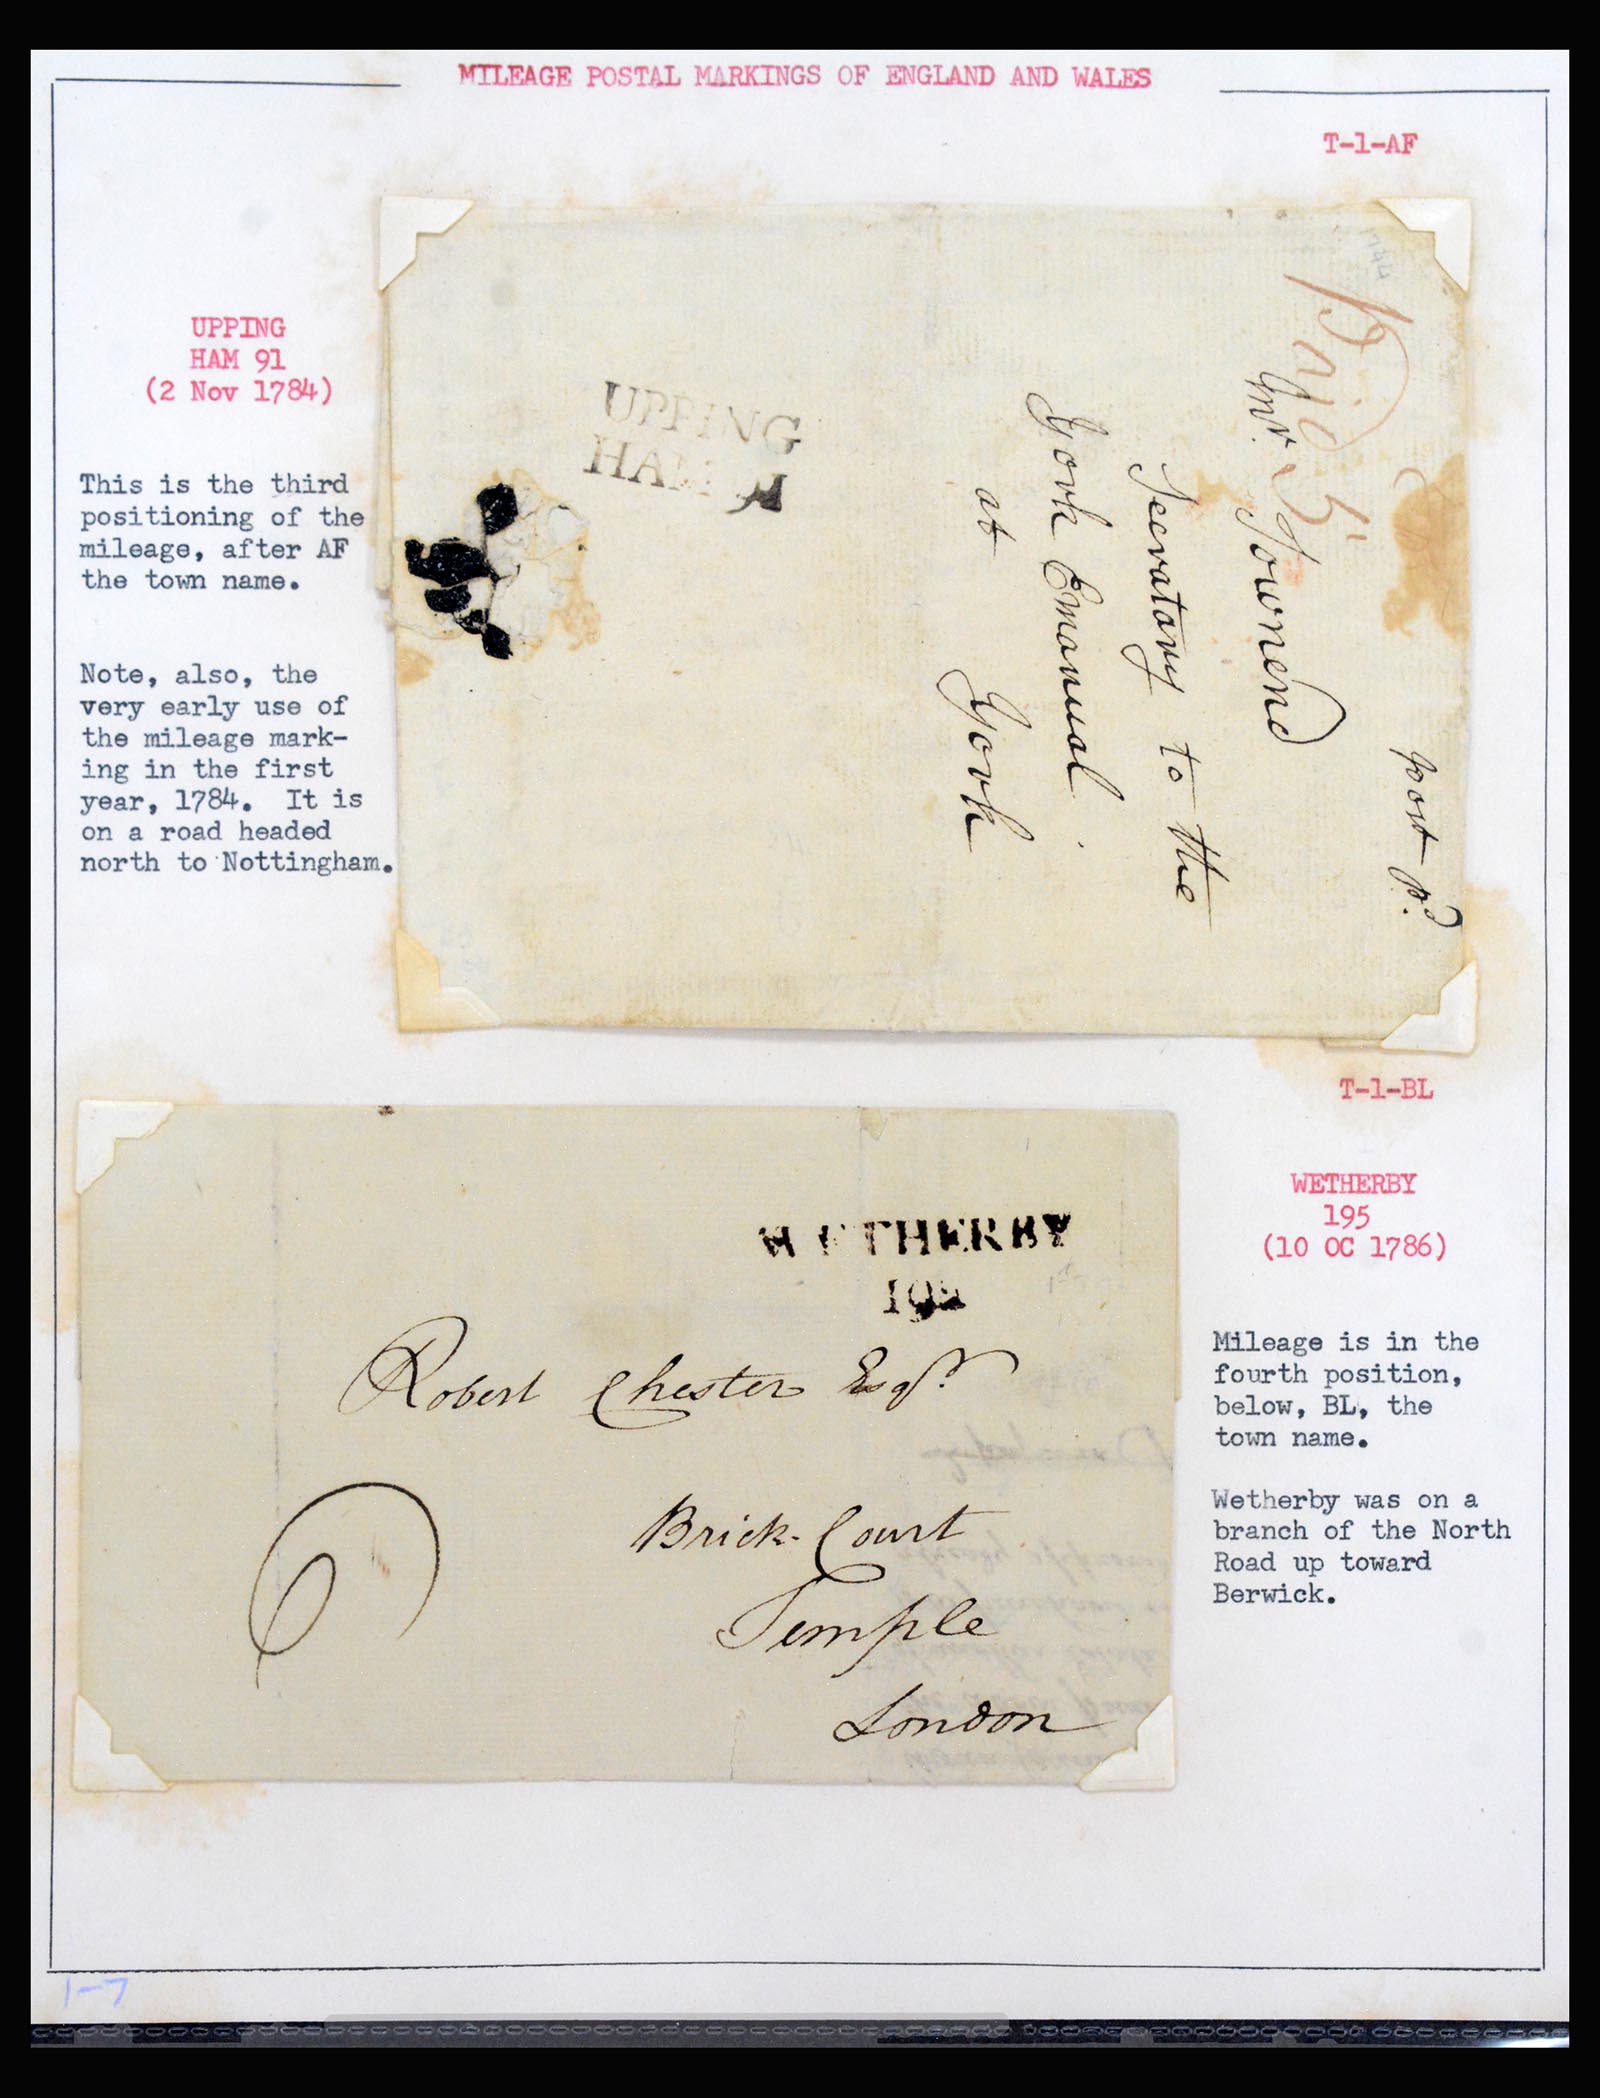 MILEAGE POSTAL MARKINGS OF ENGLAND AND WALES
T-1-AF
UPPING
HAM 91
(2 Nov 1784)
This is the third
positioning of the
mileage, after AF
the town name.
Note, also, the
very early use of
the mileage mark-
ing in the first
year, 1784. It is
on a road headed
north to Nottingham.
UPPING
HAM 91
post pd
Townend
Secratary to the
York Emanual
at York
T-1-BL
WETHERBY
195
(10 OC 1786)
Mileage is in the
fourth position,
below, BL, the
town name.
Wetherby was on a
branch of the North
Road up toward
Berwick.
WETHERBY
195
Robert Chester Esqr.
Brick-Court
Temple
London
6
1-7